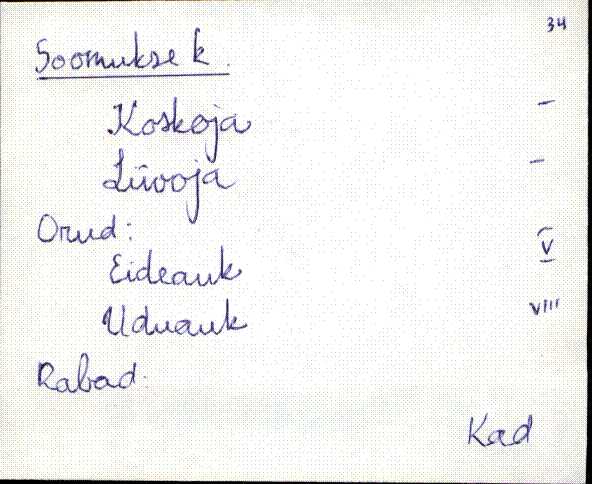 34
Soomukse k.
Koskoja –
Liivoja –
Orud:
Eideauk V
Uduauk VIII
Rabad:
Kad